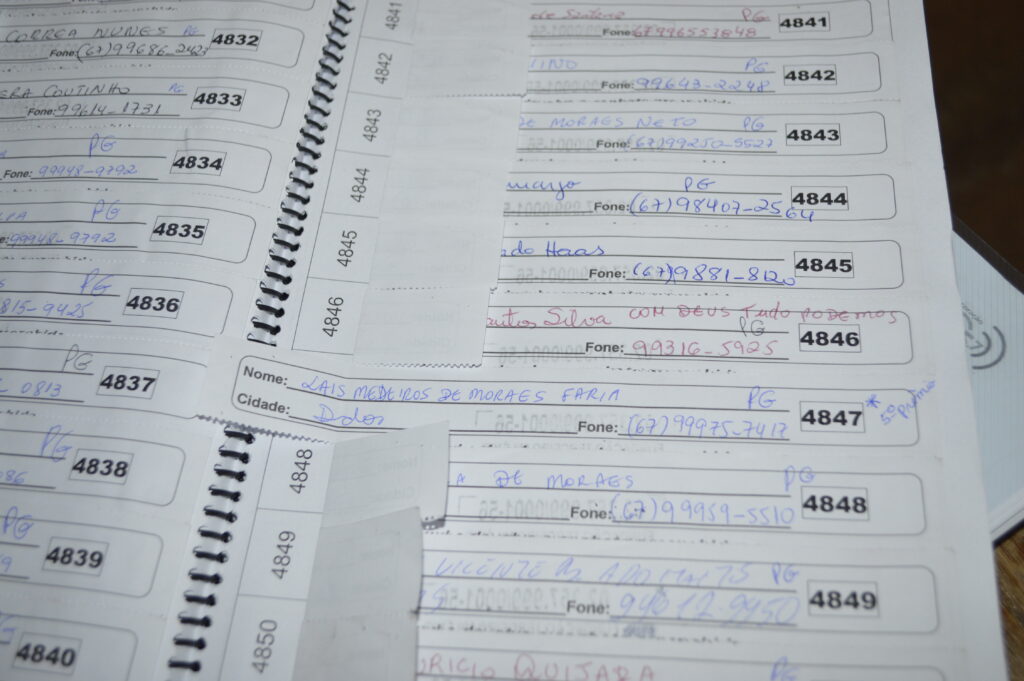 CORREA NUNES PG 4832
Fone: (67)99686-242
COUTINHO PG 4833
Fone: 99614-1731
PG 4834
Fone: 99948-9792
PG 4835
99948-9792
PG 4836
815-9425
PG 4837
0813
PG 4838
086
PG 4839
9
4840
4841
4842
4843
4844
4845
4846
de Santana PG 4841
Fone: 67996553848
TINO PG 4842
Fone: 99643-2248
DE MORAES NETO PG 4843
Fone: (67)99250-5527
margo PG 4844
Fone: (67)98407-2564
ado Haas 4845
Fone: (67)9881-8120
Silva COM DEUS Tudo PODEMOS
PG 4846
Fone: 99316-5925
Nome: LAIS MEDEIROS DE MORAES FARIA PG 4847 * 5º Prêmio
Cidade: Ddos Fone: (67)99975-7417
4848
4849
4850
A DE MORAES PG 4848
Fone: (67)99959-5510
VICENTE PG 4849
Fone: 94012-9450
ORICIO QUIJARA PG